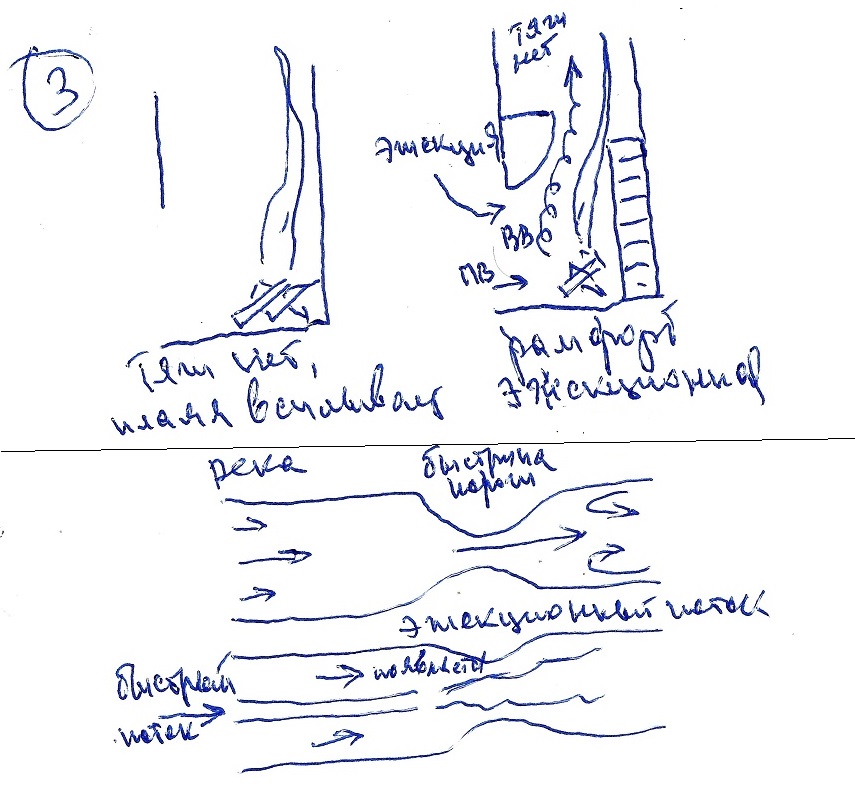 3
Тяги
нет
эжекция
ВВ
ПВ
Тяги нет,
пламя всплывает
рамфорд
эжекционная
река
быстрина
пороги
эжекционный поток
быстрый
поток